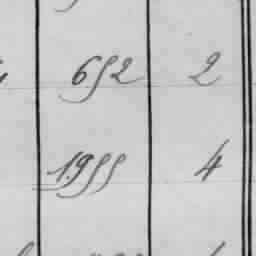 652 2
1.955 4